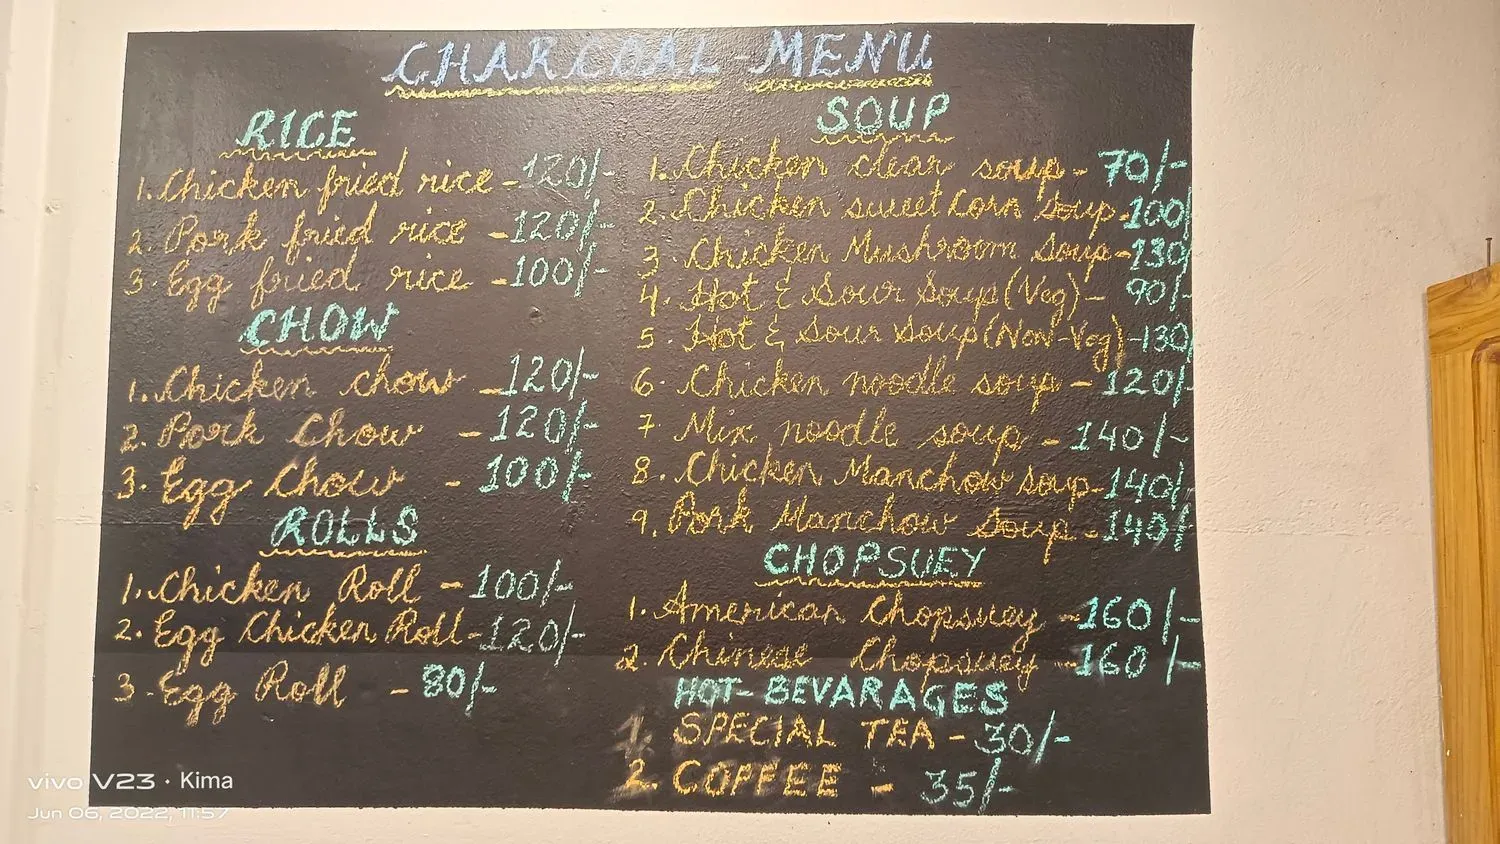 CHARCOAL-MENU
RICE
1. Chicken fried rice - 120/-
2. Pork fried rice - 120/-
3. Egg fried rice - 100/-
CHOW
1. Chicken chow - 120/-
2. Pork Chow - 120/-
3. Egg Chow - 100/-
ROLLS
1. Chicken Roll - 100/-
2. Egg Chicken Roll - 120/-
3. Egg Roll - 80/-
SOUP
1. Chicken clear soup - 70/-
2. Chicken sweet corn Soup - 100/
3. Chicken Mushroom Soup - 130/
4. Hot & Sour Soup (Veg) - 90/-
5. Hot & Sour Soup (Non-Veg) - 130/
6. Chicken noodle soup - 120/-
7. Mix noodle soup - 140/-
8. Chicken Manchow Soup - 140/-
9. Pork Manchow Soup - 140/-
CHOPSUEY
1. American Chopsuey - 160/-
2. Chinese Chopsuey - 160/-
HOT-BEVARAGES
1. SPECIAL TEA - 30/-
2. COFFEE - 35/-
vivo V23 · Kima
Jun 06, 2022, 11:57